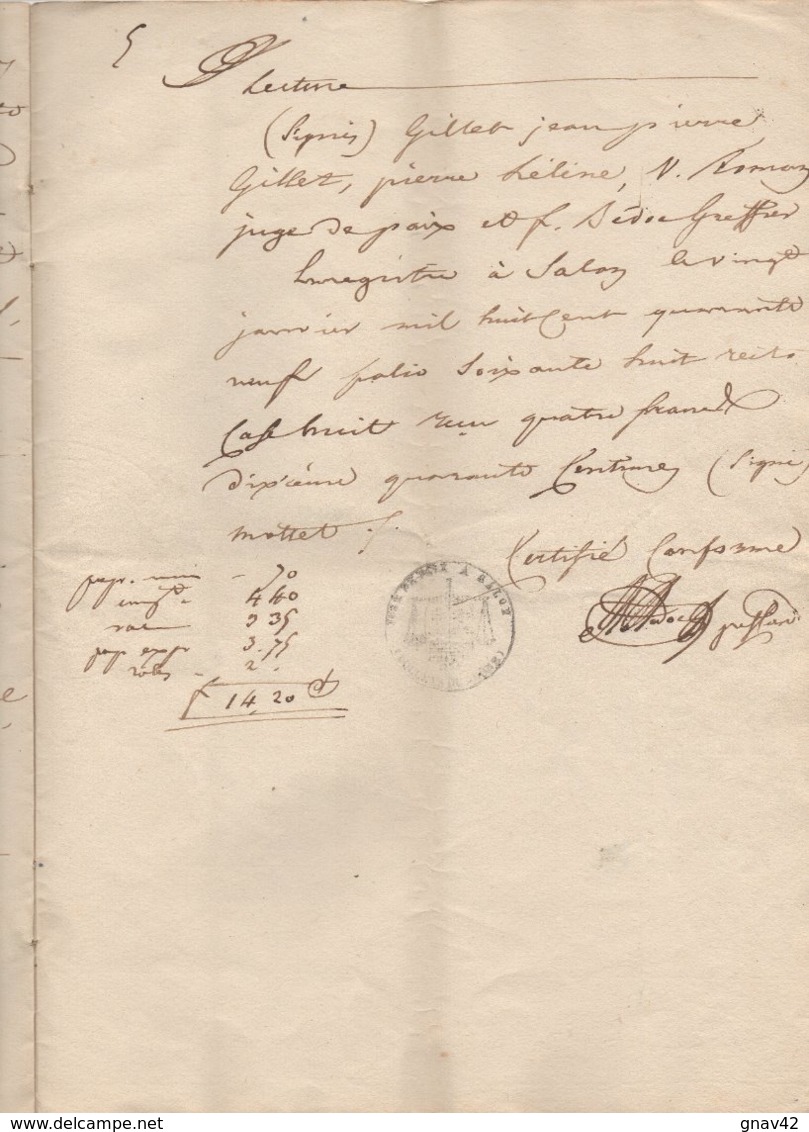 5
lecture
(Signés) Gillet jean pierre
Gillet, pierre hélène, V. Roman
juge de paix et f. Bédoc Greffier
Enregistré à Salon le vingt
janvier mil huit Cent quarante
neuf folio Soixante huit recto
Case huit reçu quatre francs
dixième quarante Centimes (Signé
mottet /.
Certifié Conforme
pap. min - 70
enrgt 4 40
3 35
pap expe 3.75
roles - 2 .
f 14,20 ct
delcampe.net
gnav42